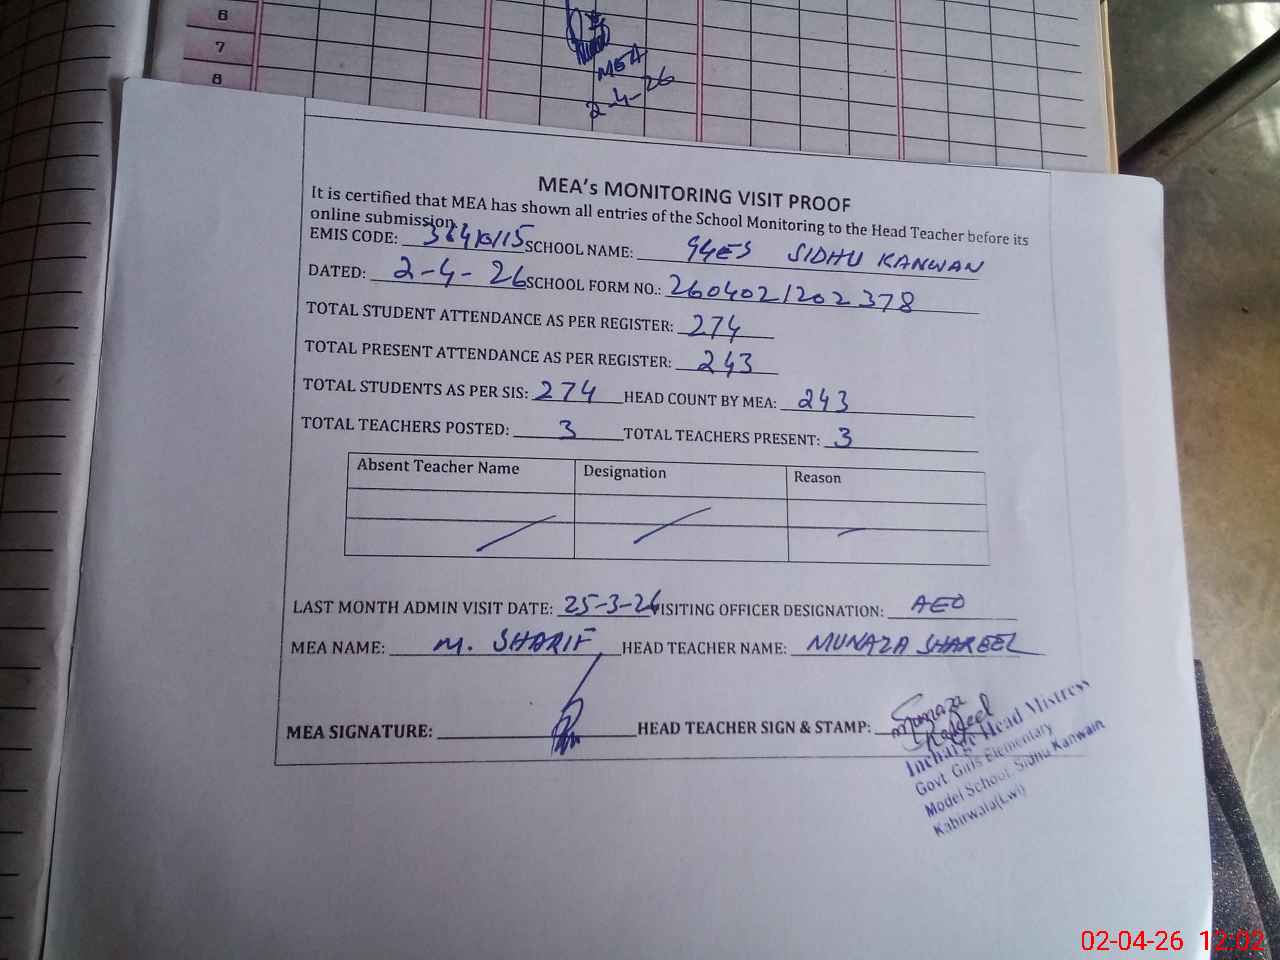 6
7
8
MEA
2-4-26
MEA's MONITORING VISIT PROOF
It is certified that MEA has shown all entries of the School Monitoring to the Head Teacher before its
online submission.
EMIS CODE: SCHOOL NAME: GGES SIDHU KANWAN
DATED: 2-4-26 SCHOOL FORM NO.: 2604021202378
TOTAL STUDENT ATTENDANCE AS PER REGISTER: 274
TOTAL PRESENT ATTENDANCE AS PER REGISTER: 243
TOTAL STUDENTS AS PER SIS: 274 HEAD COUNT BY MEA: 243
TOTAL TEACHERS POSTED: 3 TOTAL TEACHERS PRESENT: 3
Absent Teacher Name Designation Reason
LAST MONTH ADMIN VISIT DATE: 25-3-26 VISITING OFFICER DESIGNATION: AEO
MEA NAME: M. SHARIF HEAD TEACHER NAME: MUNAZA
MEA SIGNATURE: HEAD TEACHER SIGN & STAMP: Munaza
Incharge Head Mistress
Govt. Girls Elementary
Model School, Sidhu Kanwain
Kabirwala(Kwl)
02-04-26 12:02